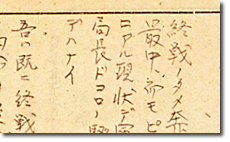 終戦ノタメ奔
最中、而モピ
ニアル現状デ
局長ドコロノ
デハナイ
吾ハ既ニ終戦